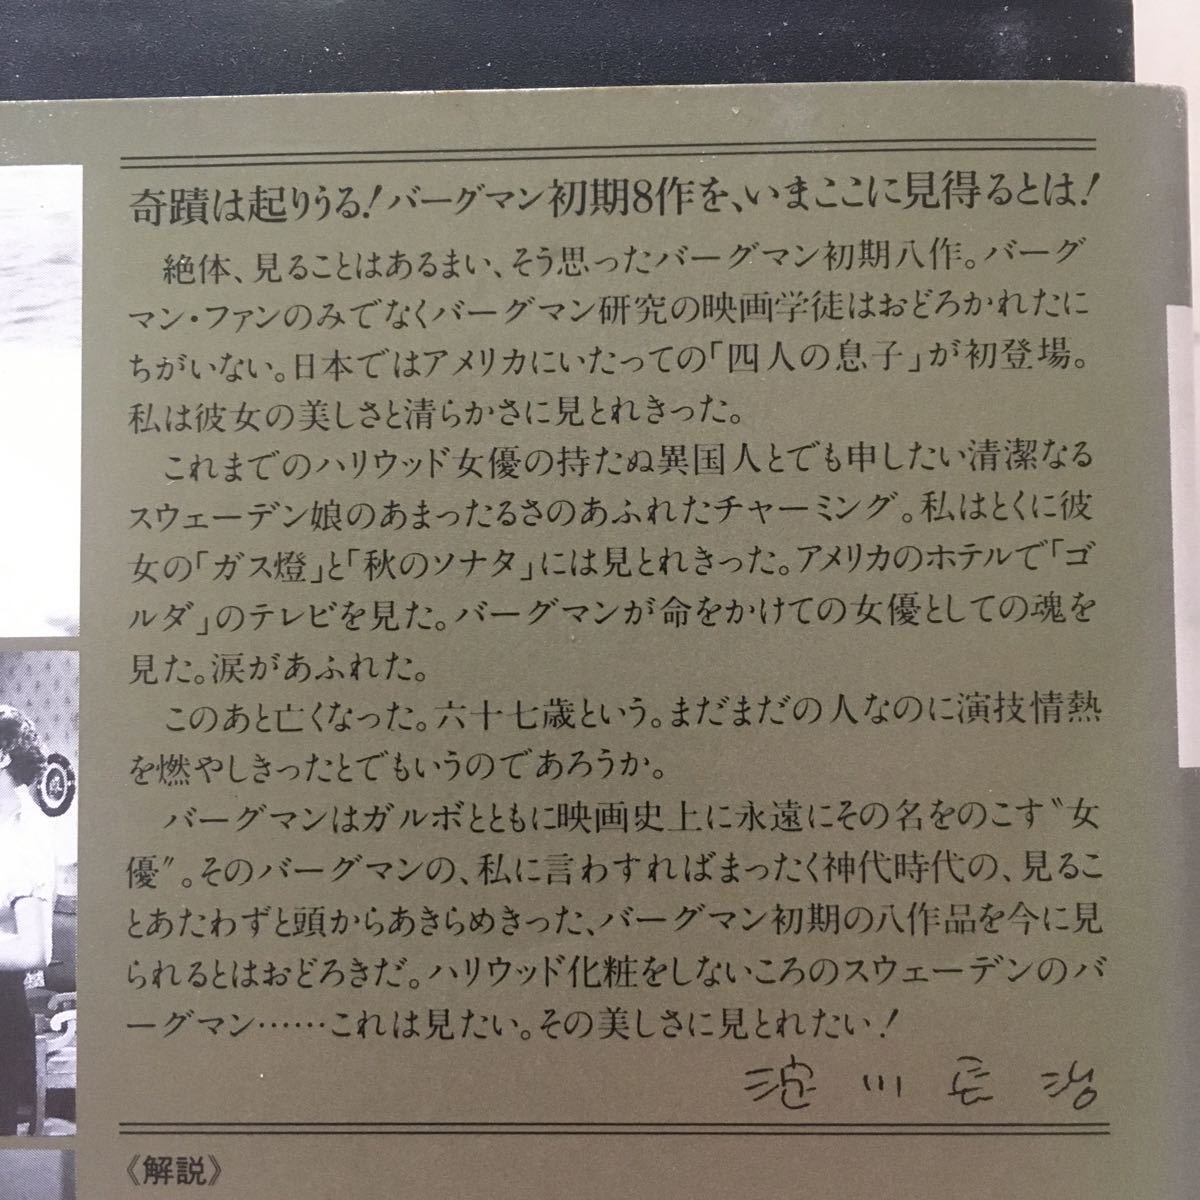 奇蹟は起りうる!バーグマン初期8作を、いまここに見得るとは!
絶体、見ることはあるまい、そう思ったバーグマン初期八作。バーグ
マン・ファンのみでなくバーグマン研究の映画学徒はおどろかれたに
ちがいない。日本ではアメリカにいたっての「四人の息子」が初登場。
私は彼女の美しさと清らかさに見とれきった。
これまでのハリウッド女優の持たぬ異国人とでも申したい清潔なる
スウェーデン娘のあまったるさのあふれたチャーミング。私はとくに彼
女の「ガス燈」と「秋のソナタ」には見とれきった。アメリカのホテルで「ゴ
ルダ」のテレビを見た。バーグマンが命をかけての女優としての魂を
見た。涙があふれた。
このあと亡くなった。六十七歳という。まだまだの人なのに演技情熱
を燃やしきったとでもいうのであろうか。
バーグマンはガルボとともに映画史上に永遠にその名をのこす〝女
優〟。そのバーグマンの、私に言わすればまったく神代時代の、見るこ
とあたわずと頭からあきらめきった、バーグマン初期の八作品を今に見
られるとはおどろきだ。ハリウッド化粧をしないころのスウェーデンのバ
ーグマン……これは見たい。その美しさに見とれたい!
淀川長治
《解説》